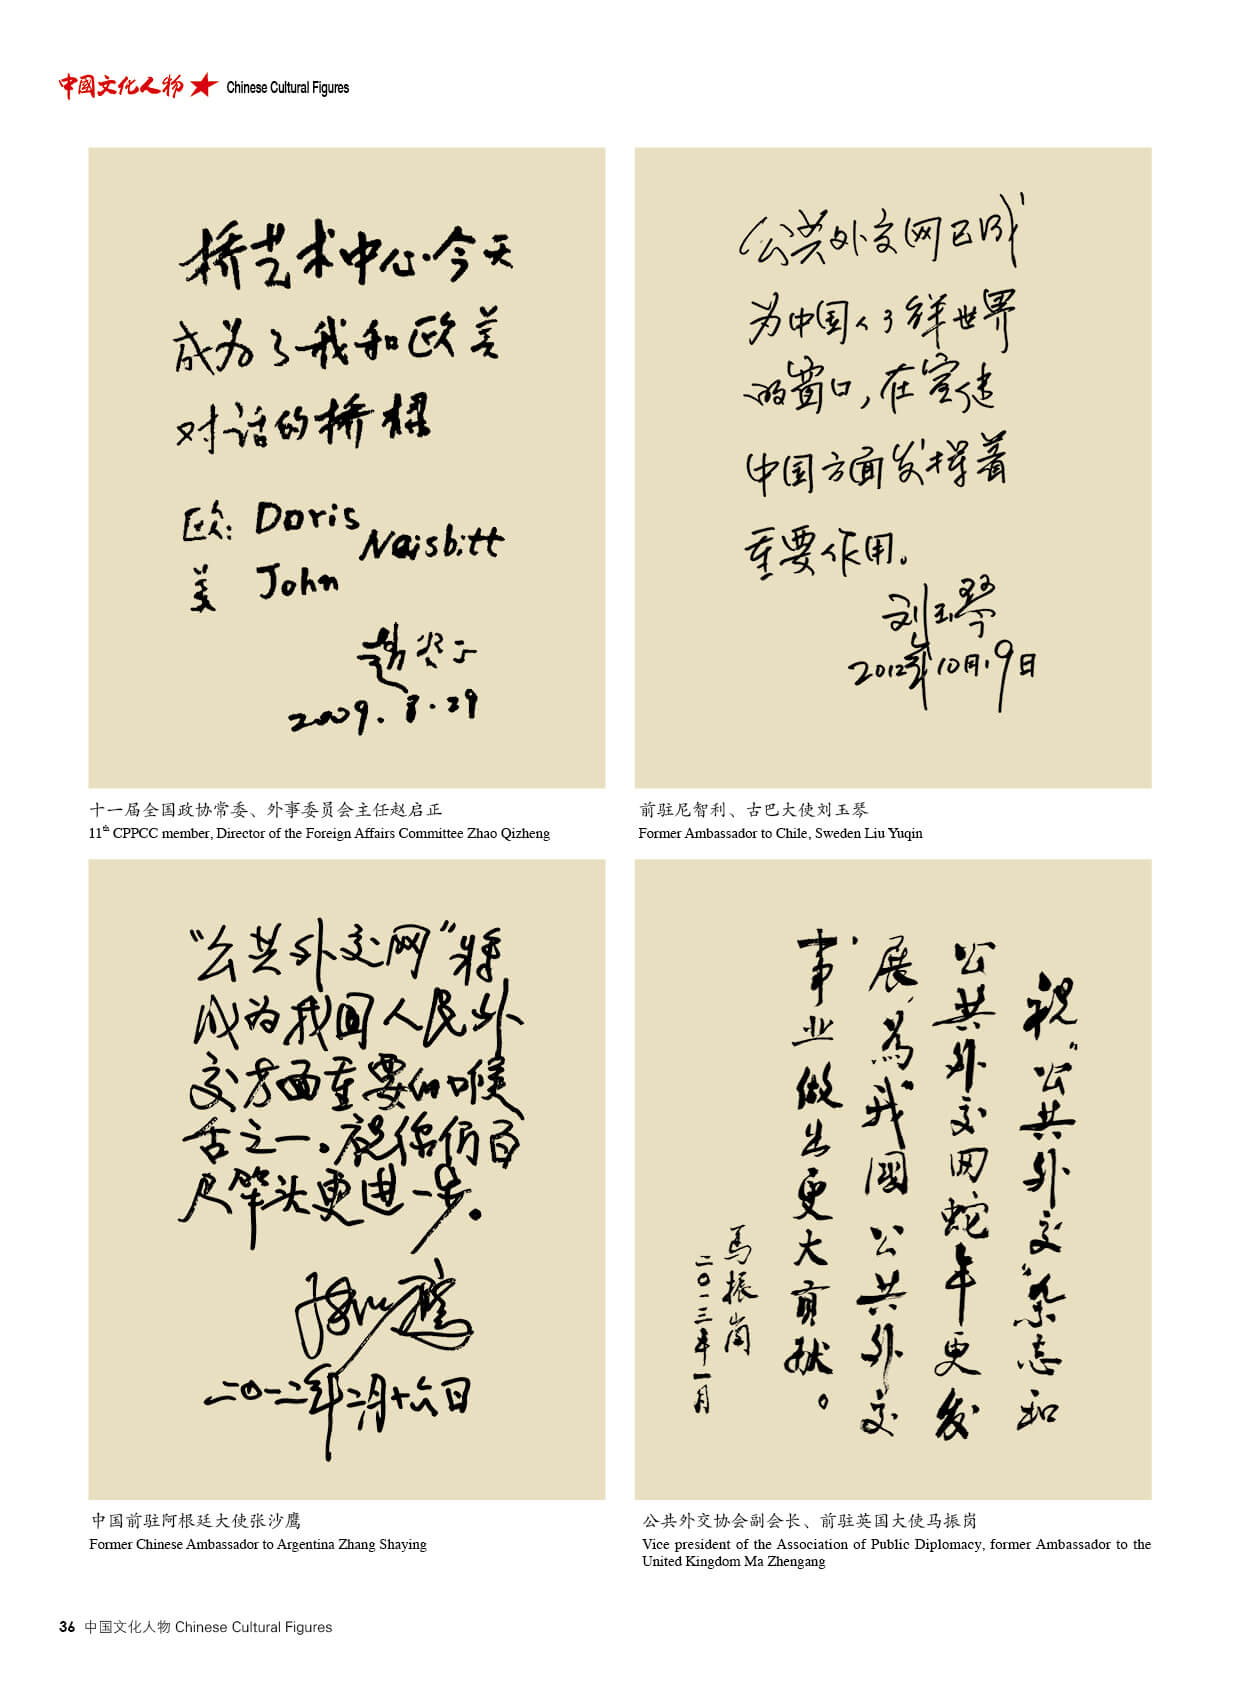 中國文化人物 Chinese Cultural Figures
桥艺术中心·今天
成为了我和欧美
对话的桥樑
欧: Doris
Naisbitt
美 John
赵启正
2009.8.29
十一届全国政协常委、外事委员会主任赵启正
11th CPPCC member, Director of the Foreign Affairs Committee Zhao Qizheng
公共外交网已成
为中国人了解世界
的窗口,在宣传
中国方面发挥着
重要作用。
刘玉琴
2012年10月19日
前驻尼智利、古巴大使刘玉琴
Former Ambassador to Chile, Sweden Liu Yuqin
“公共外交网”将
成为我国人民外
交方面重要的喉
舌之一。祝你们百
尺竿头更进一步。
张沙鹰
二〇一二年二月十六日
中国前驻阿根廷大使张沙鹰
Former Chinese Ambassador to Argentina Zhang Shaying
祝“公共外交”杂志和
公共外交网蛇年更发
展,為我國公共外交
事业做出更大貢献。
馬振崗
二〇一三年一月
公共外交协会副会长、前驻英国大使马振岗
Vice president of the Association of Public Diplomacy, former Ambassador to the
United Kingdom Ma Zhengang
36 中国文化人物 Chinese Cultural Figures